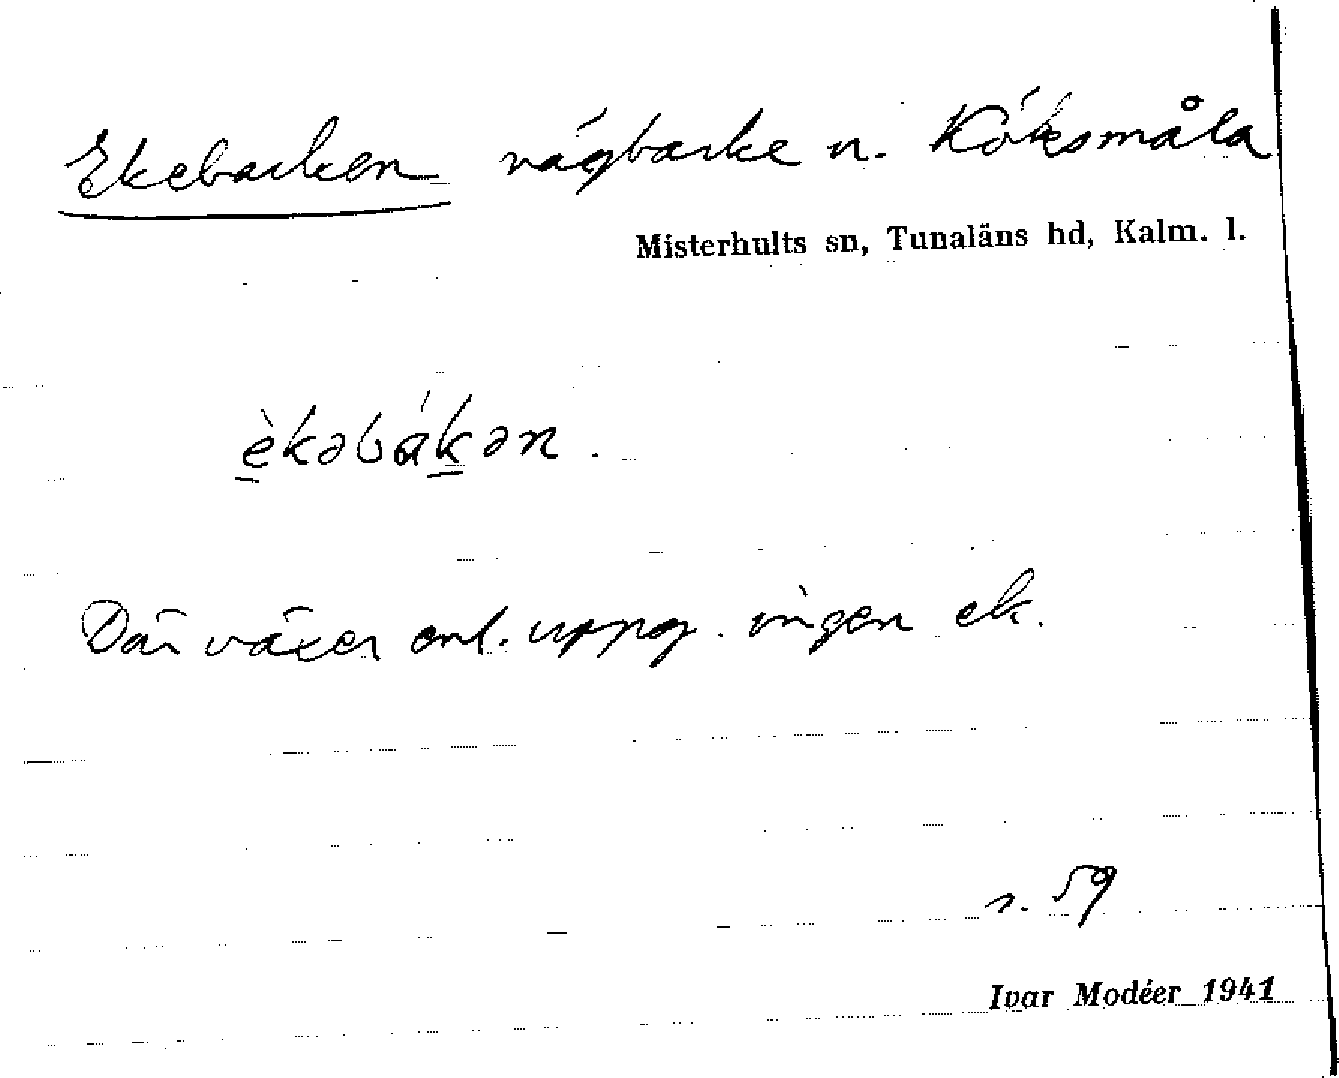 Ekebacken vägbacke n. Kôksmåla
Misterhults sn, Tunaläns hd, Kalm. l.
èkəbákən.
Där växer enl. uppg. ingen ek.
s. 59
Ivar Modéer 1941